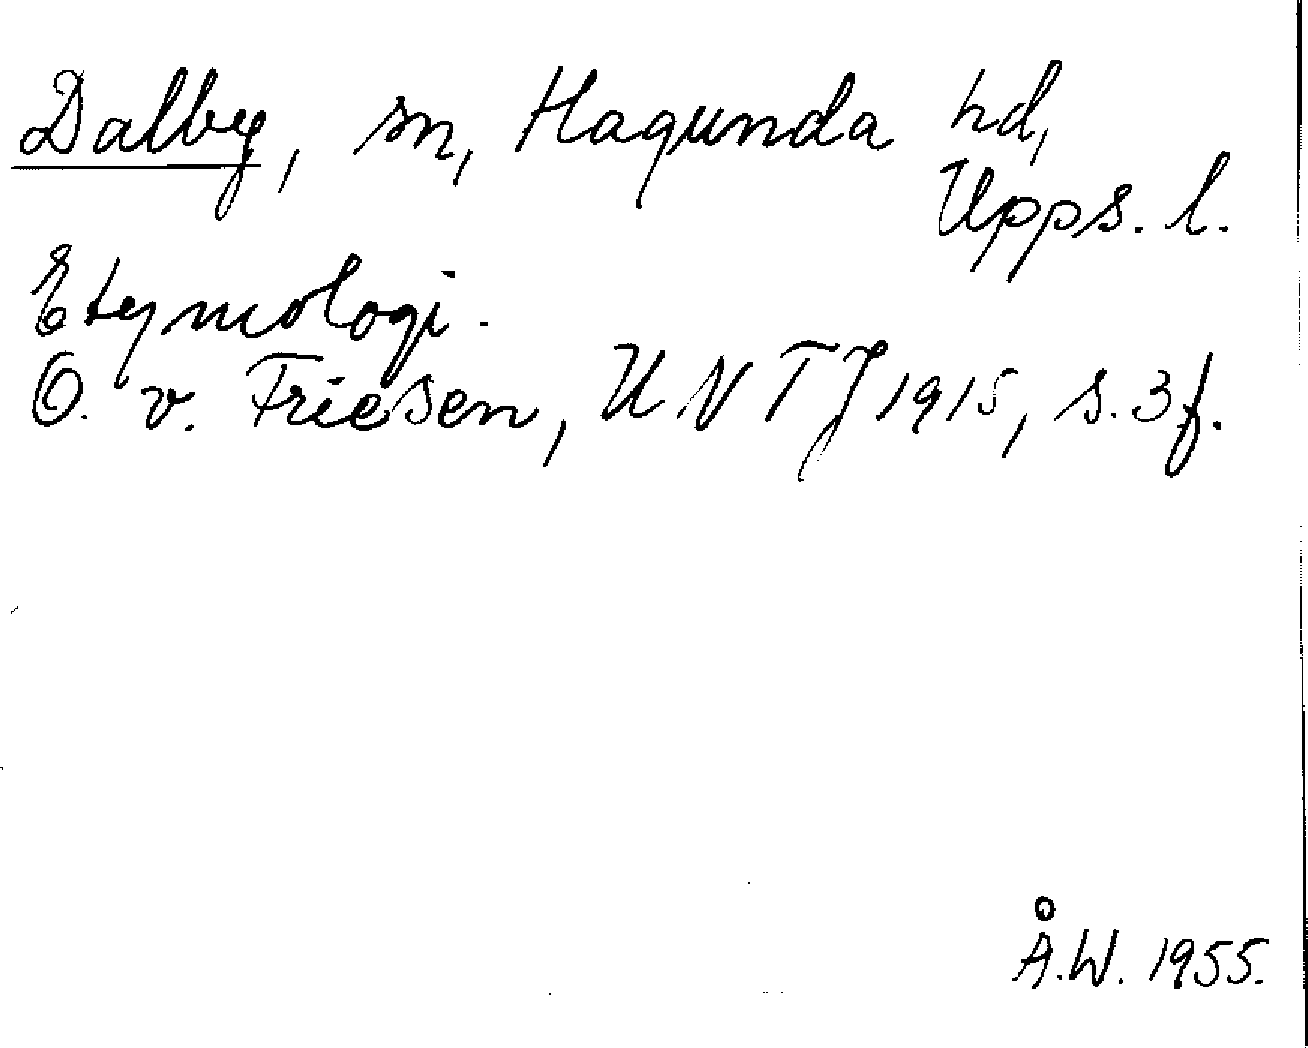 Dalby, sn, Hagunda hd,
Upps. l.
Etymologi.
O. v. Friesen, UNTJ 1915, s. 3 f.
Å.W. 1955.